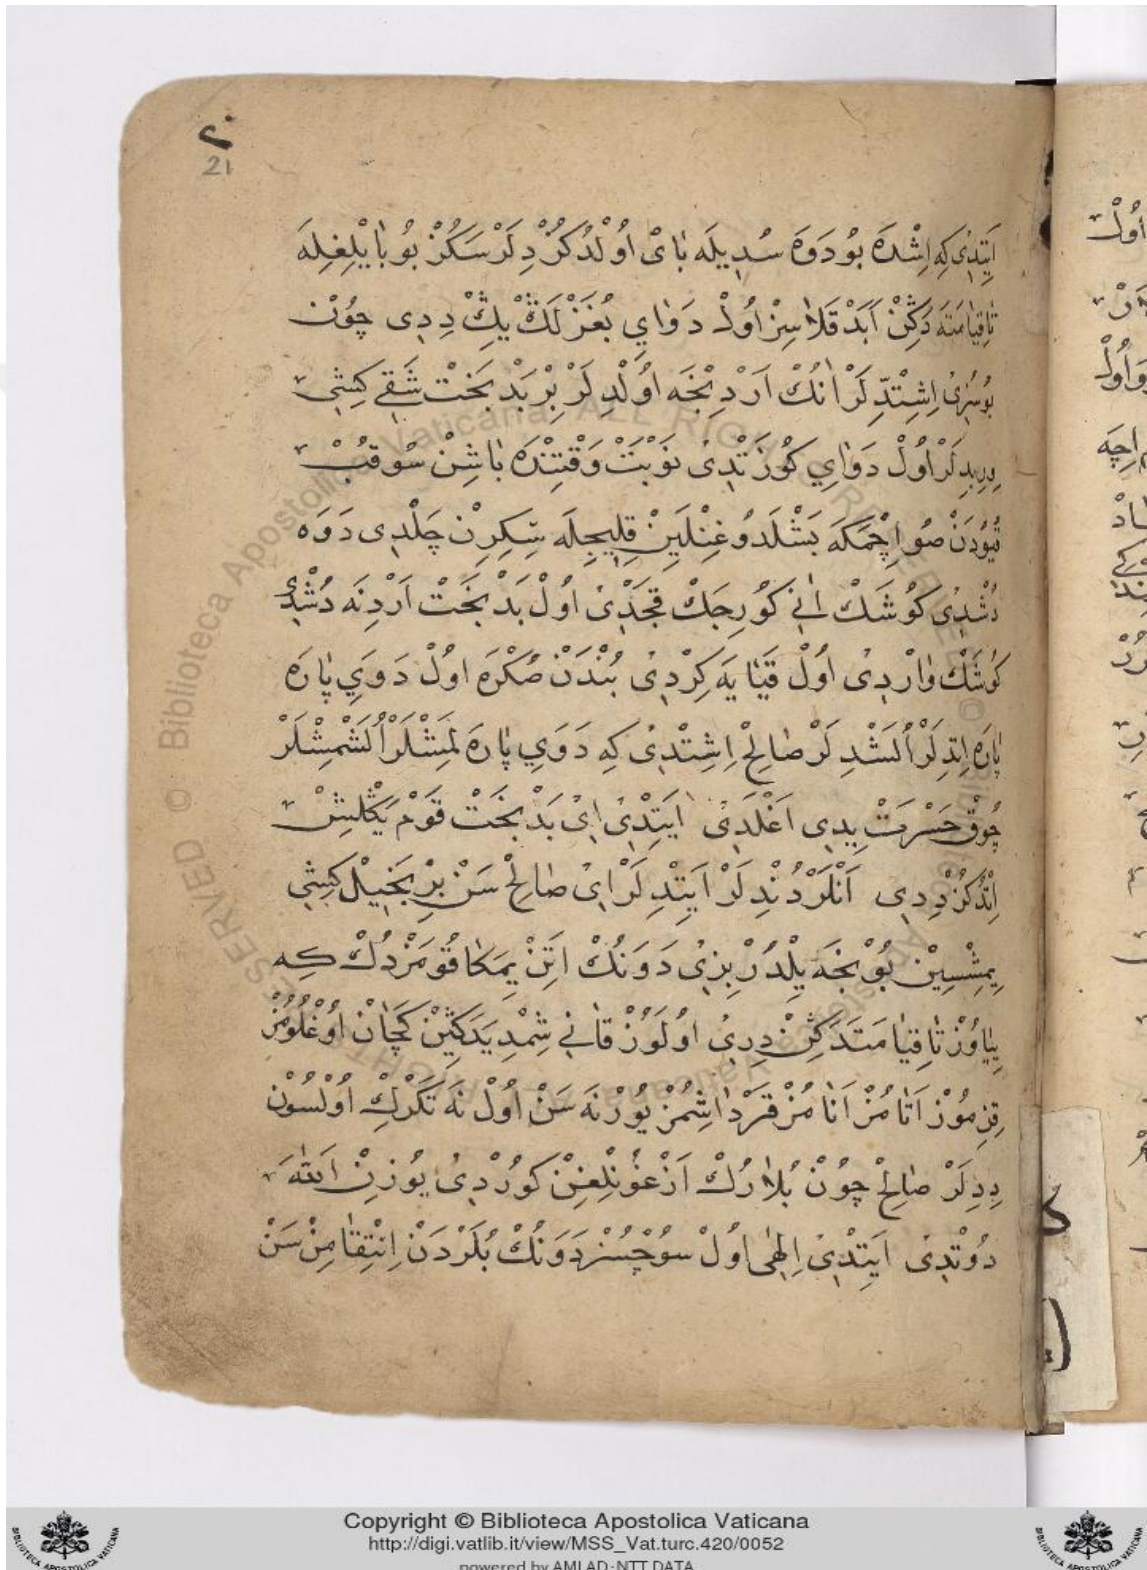 ٢٠
21
اَيِتدِى كِه اِشْدَه بُو دَوَه سُدِيلَه بٰاىْ اُولْدُكُزْ دِلَرْسَكُزْ بُو بٰايْلِغِلَه
تٰا قِيٰامَتَه دَكِنْ اَبَدْ قَلاسِزْ اُولْ دَوٰايِ بُغَزْلَمَڭْ يِڭْ دِدِى چُونْ
بُو سُزِىْ اِشِتْدِّلَرْ اَنُكْ اَرْدِنْجَه اُولْدِلَرْ بِرْ بَدْ بَخَتْ شَقِى كِشِى
وِرِبدِلَرْ اُولْ دَوٰايِ كُوزَتْدِىْ نَوْبَتْ وَقْتِنْدَه بٰاشِنْ سُوقُبْ
قُيُودَنْ صُو اِچْمَكَه بَشْلَدُوغِنْلَيِنْ قِلِيجِلَه سِّكِرِنْ چَلْدِى دَوَه
دُشْدِىْ كُوشَكْ اَنِى كُورِجَكْ قَچَدْىْ اُولْ بَدْ بَخَتْ اَرْدِنَه دُشْدِىْ
كُوشَكْ وٰارْدِىْ اُولْ قَيٰايَه كِرْدِىْ بُنْدَنْ صُكْرَه اولْ دَوَيِ پٰارَه
پٰارَه اِتدِلَرْ اُلَشْدِلَرْ صٰالِحْ اِشِتْدِىْ كِه دَوَيِ پٰارَه لَمِشْلَرْ اُلَشْمِشْلَرْ
چُوقْ حَسْرَتْ يِدِى اَغْلَدِىْ اَيِتْدِىْ اِىْ بَدْ بَخَتْ قَوْمْ يَڭْلِشْ
اِتْدُكُزْ دِدِى اَنْلَرْ دُنْدِلَرْ اَيِتْدِلَرْ اِىْ صٰالِحْ سَنْ بِرْ بَخِيلْ كِشِى
يِمِشْسِيْنْ بُونْجَه يِلْدُرْ بِزِىْ دَوَنُكْ اِتِنْ يِمَكَا قُومَزْدُكْ كِه
يِيٰاوُزْ تٰا قِيٰامَتَدَكِنْ دِرِىْ اُولَوُزْ قٰانِى شِمْدِيَدَكِيْنْ كَچَانْ اُوغْلُومُزْ
قِزِمُوزْ اَتٰامُزْ اَنٰامُزْ قَرَنْدٰاشِمُزْ يُورْنَه سَنْ اُولْ نَه تَكَرَّكْ اُولْسُونْ
دِدِلَرْ صٰالِحْ چُونْ بُلارُكْ اَزْغُونْلِغِنْ كُورْدِىْ يُوزِنْ اَللّٰهَ
دُوتْدِىْ اَيِتْدِىْ اِلٰهِى اُولْ سُوچْسُزْ دَوَنُكْ بُلَرْدَنْ اِنْتِقٰامِنْ سَنْ
Copyright © Biblioteca Apostolica Vaticana
http://digi.vatlib.it/view/MSS_Vat.turc.420/0052
powered by AMLAD · NTT DATA